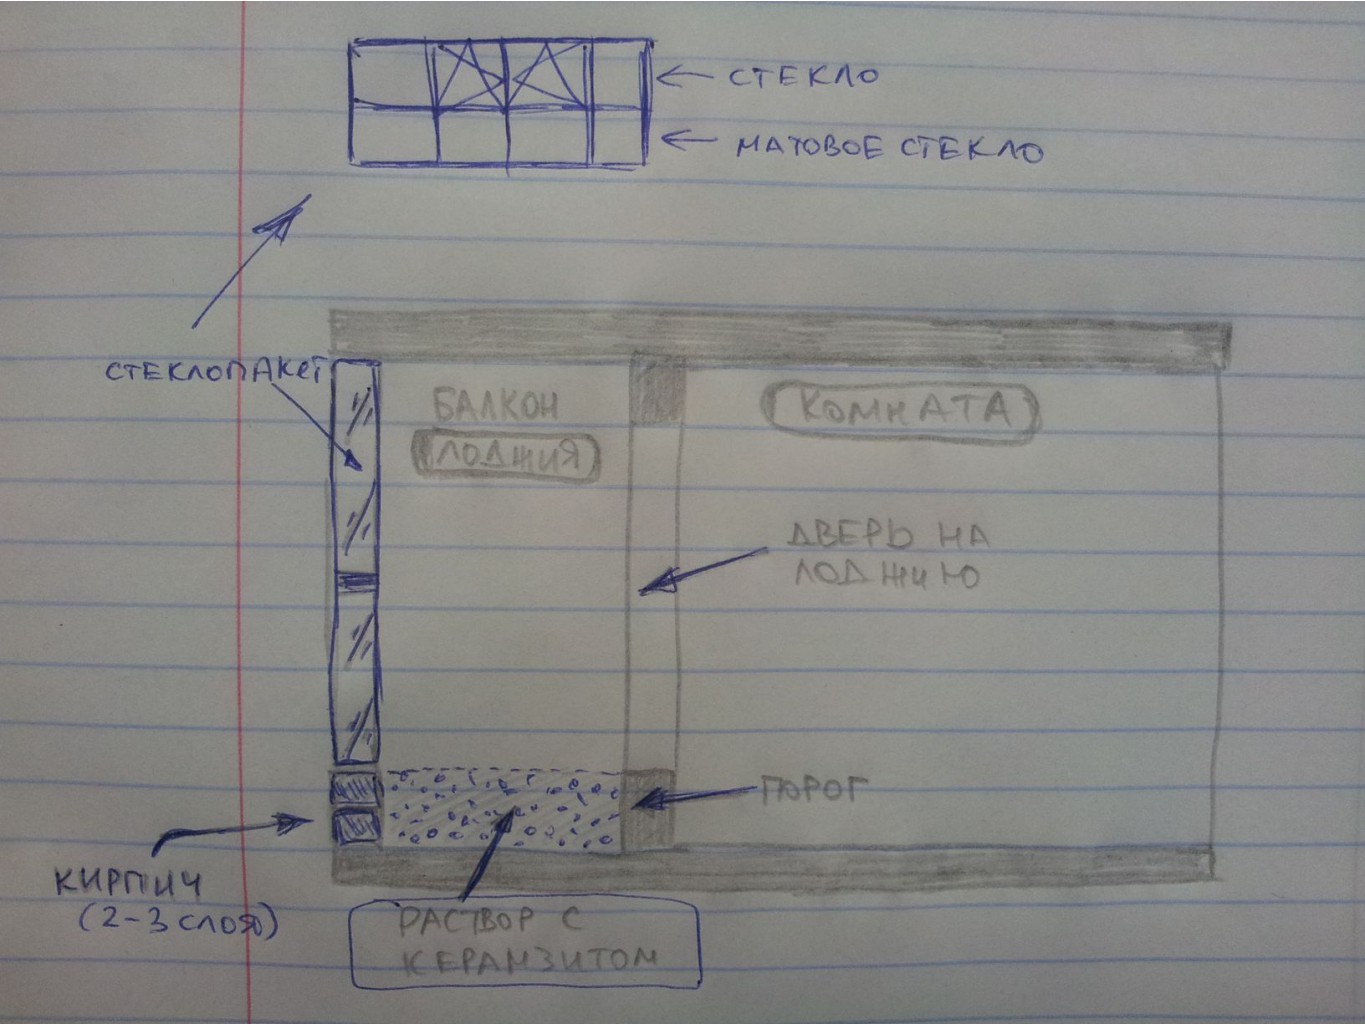 СТЕКЛО
МАТОВОЕ СТЕКЛО
СТЕКЛОПАКЕТ
БАЛКОН
ЛОДЖИЯ
КОМНАТА
ДВЕРЬ НА
ЛОДЖИЮ
ПОРОГ
КИРПИЧ
(2-3 СЛОЯ)
РАСТВОР С
КЕРАМЗИТОМ